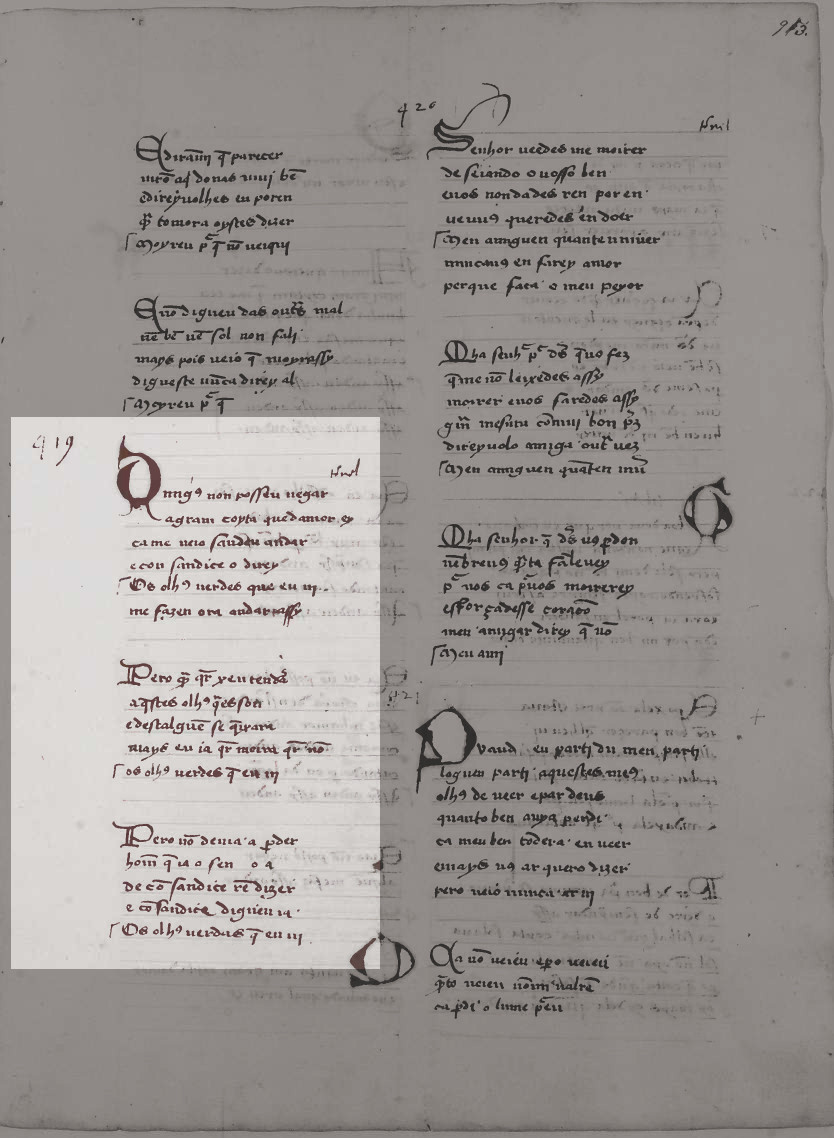 913.
426
Ediram̃ q̃ parecer
edireyuolhes eu poren
q̃ tomora oystes dizer
Moyreu p̃ q̃ nõ ueiqui
Enõ digueu das out̃s mal
nẽ bẽ nẽ sol non fali
mays pois ueio q̃ moyrassy
digueste nũca direy al
Moyreu p̃ q̃
419
Amig9 non posseu negar
a gram coyta que damor ey
ca me ueio sandeu andar
e con sandice o direy
Os olh9 uerdes que eu ui
me fazen ora andar assy
Pero q̃ q̃r xentenda
aq̃stes olh9 q̃es son
e destalguẽ se q̃ixara
mays eu ia q̃r moira q̃r nõ
os olh9 uerdes q̃ eu ui
Pero nõ deuia a ꝑder
hom̃ q̃ ia o sen o a
de cõ sandice rẽ dizer
e cõ sandice digueu ia
Os olh9 uerdes q̃ eu ui
Senhor ueedes me moirer
deseiando o uosso ben
euos nondades ren por en
ueuus queredes en doer
Meu amiguen quanteu uiuer
nuncau9 en farey amor
perque faca o meu peyor
Mha senh̃ p̃ ds̃ q̃uo fez
q̃me nõ leixedes assy
moirer euos faredes assy
gñ mesura cõmui bon p̃z
direyuolo amigo out̃ uez
Meu amiguen quãten uiũ
Mha senhor q̃ ds̃ uus ꝑdon
nẽbreu9 q̃ta fã leuey
p̃ uos ca ꝑuos moirerey
esforçadesse coraçõ
meu amigar direy q̃ nõ
Meu ami
421
Quand eu parti du meu parti
logueu parti aquestes me9
olh9 de ueer e par deus
quanto ben auya perdi
ca meu ben tõdera en ueer
emays uus ar quero dizer
pero ueio nunca ar ui
Ca nõ ueieu epero ueieu
q̃to ueieu nõmi ual rẽ
ca ꝑdi o lume p̃eu